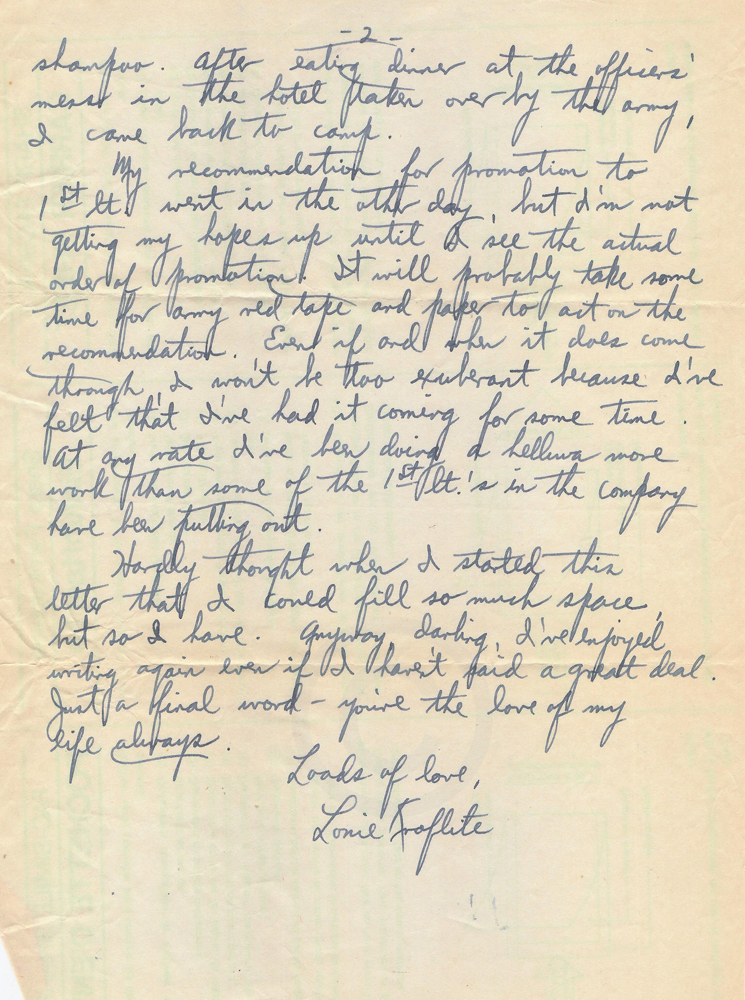 -2-
shampoo. After eating dinner at the officers'
mess in the hotel taken over by the army,
I came back to camp.
My recommendation for promotion to
1st Lt. went in the other day, but I'm not
getting my hopes up until I see the actual
order of promotion. It will probably take some
time for army red tape and paper to act on the
recommendation. Even if and when it does come
through, I won't be too exuberant because I've
felt that I've had it coming for some time.
At any rate I've been doing a helluva more
work than some of the 1st Lt.'s in the company
have been putting out.
Hardly thought when I started this
letter that I could fill so much space,
but so I have. Anyway, darling, I've enjoyed
writing again even if I haven't said a great deal.
Just a final word - you're the love of my
life always.
Loads of love,
Lonie